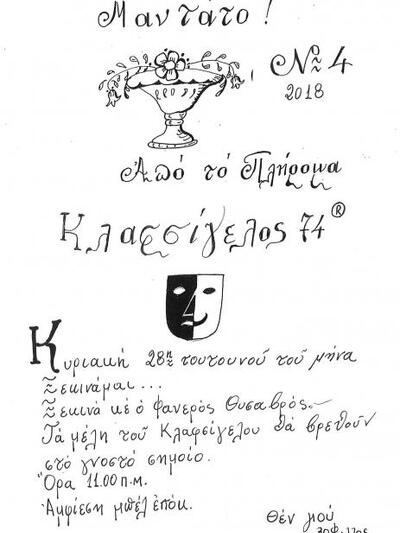 Μαντάτο!
Νο 4
2018
Από τό Πλήρωμα
Κλαφσίγελος 74®
Κυριακή 28η τουτουνού τού μήνα
Ξεκινάμαι...
Ξεκινά κέ ο φανερός Θυσαβρός.
Τά μέλη τού Κλαφσίγελου θά βρεθούν
στό γνοστό σημοίο.
Ώρα 11.00 π.μ.
Αμφίεση μπέλ έπόκ.
Θέν μού